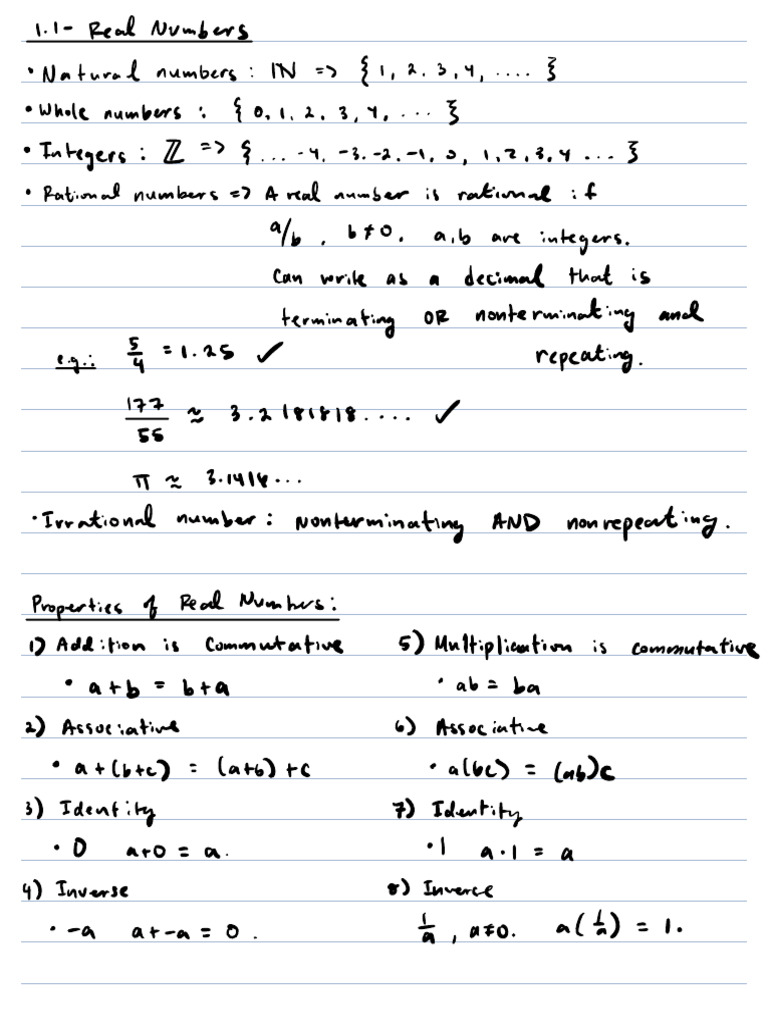 1.1- Real Numbers
• Natural numbers : ℕ => { 1, 2, 3, 4, .... }
• Whole numbers : { 0, 1, 2, 3, 4, ... }
• Integers : ℤ => { ... -4, -3, -2, -1, 0, 1, 2, 3, 4 ... }
• Rational numbers => A real number is rational if
a/b , b≠0, a,b are integers.
Can write as a decimal that is
terminating OR nonterminating and
repeating.
e.g.: 5/4 = 1.25 ✓
177/55 ≈ 3.2181818.... ✓
π ≈ 3.1416...
• Irrational number : Nonterminating AND nonrepeating.
Properties of Real Numbers:
1) Addition is Commutative
• a+b = b+a
2) Associative
• a+(b+c) = (a+b)+c
3) Identity
• 0 a+0 = a.
4) Inverse
• -a a+-a = 0 .
5) Multiplication is commutative
• ab = ba
6) Associative
• a(bc) = (ab)c
7) Identity
• 1 a·1 = a
8) Inverse
1/a , a≠0. a(1/a) = 1.